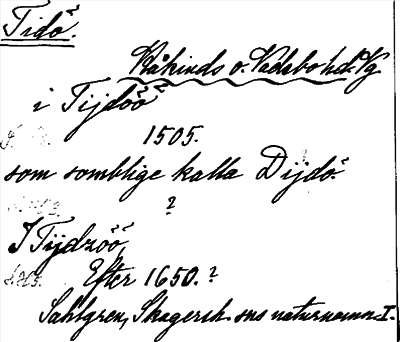 Tidö.
Kåkinds o. Vadsbo hd. Vg
i Tijdöö
1505.
som somblige kalla Dijdö
?
I Tijdzöö,
Efter 1650.?
Sahlgren, Skagersh. sns naturnamn I.